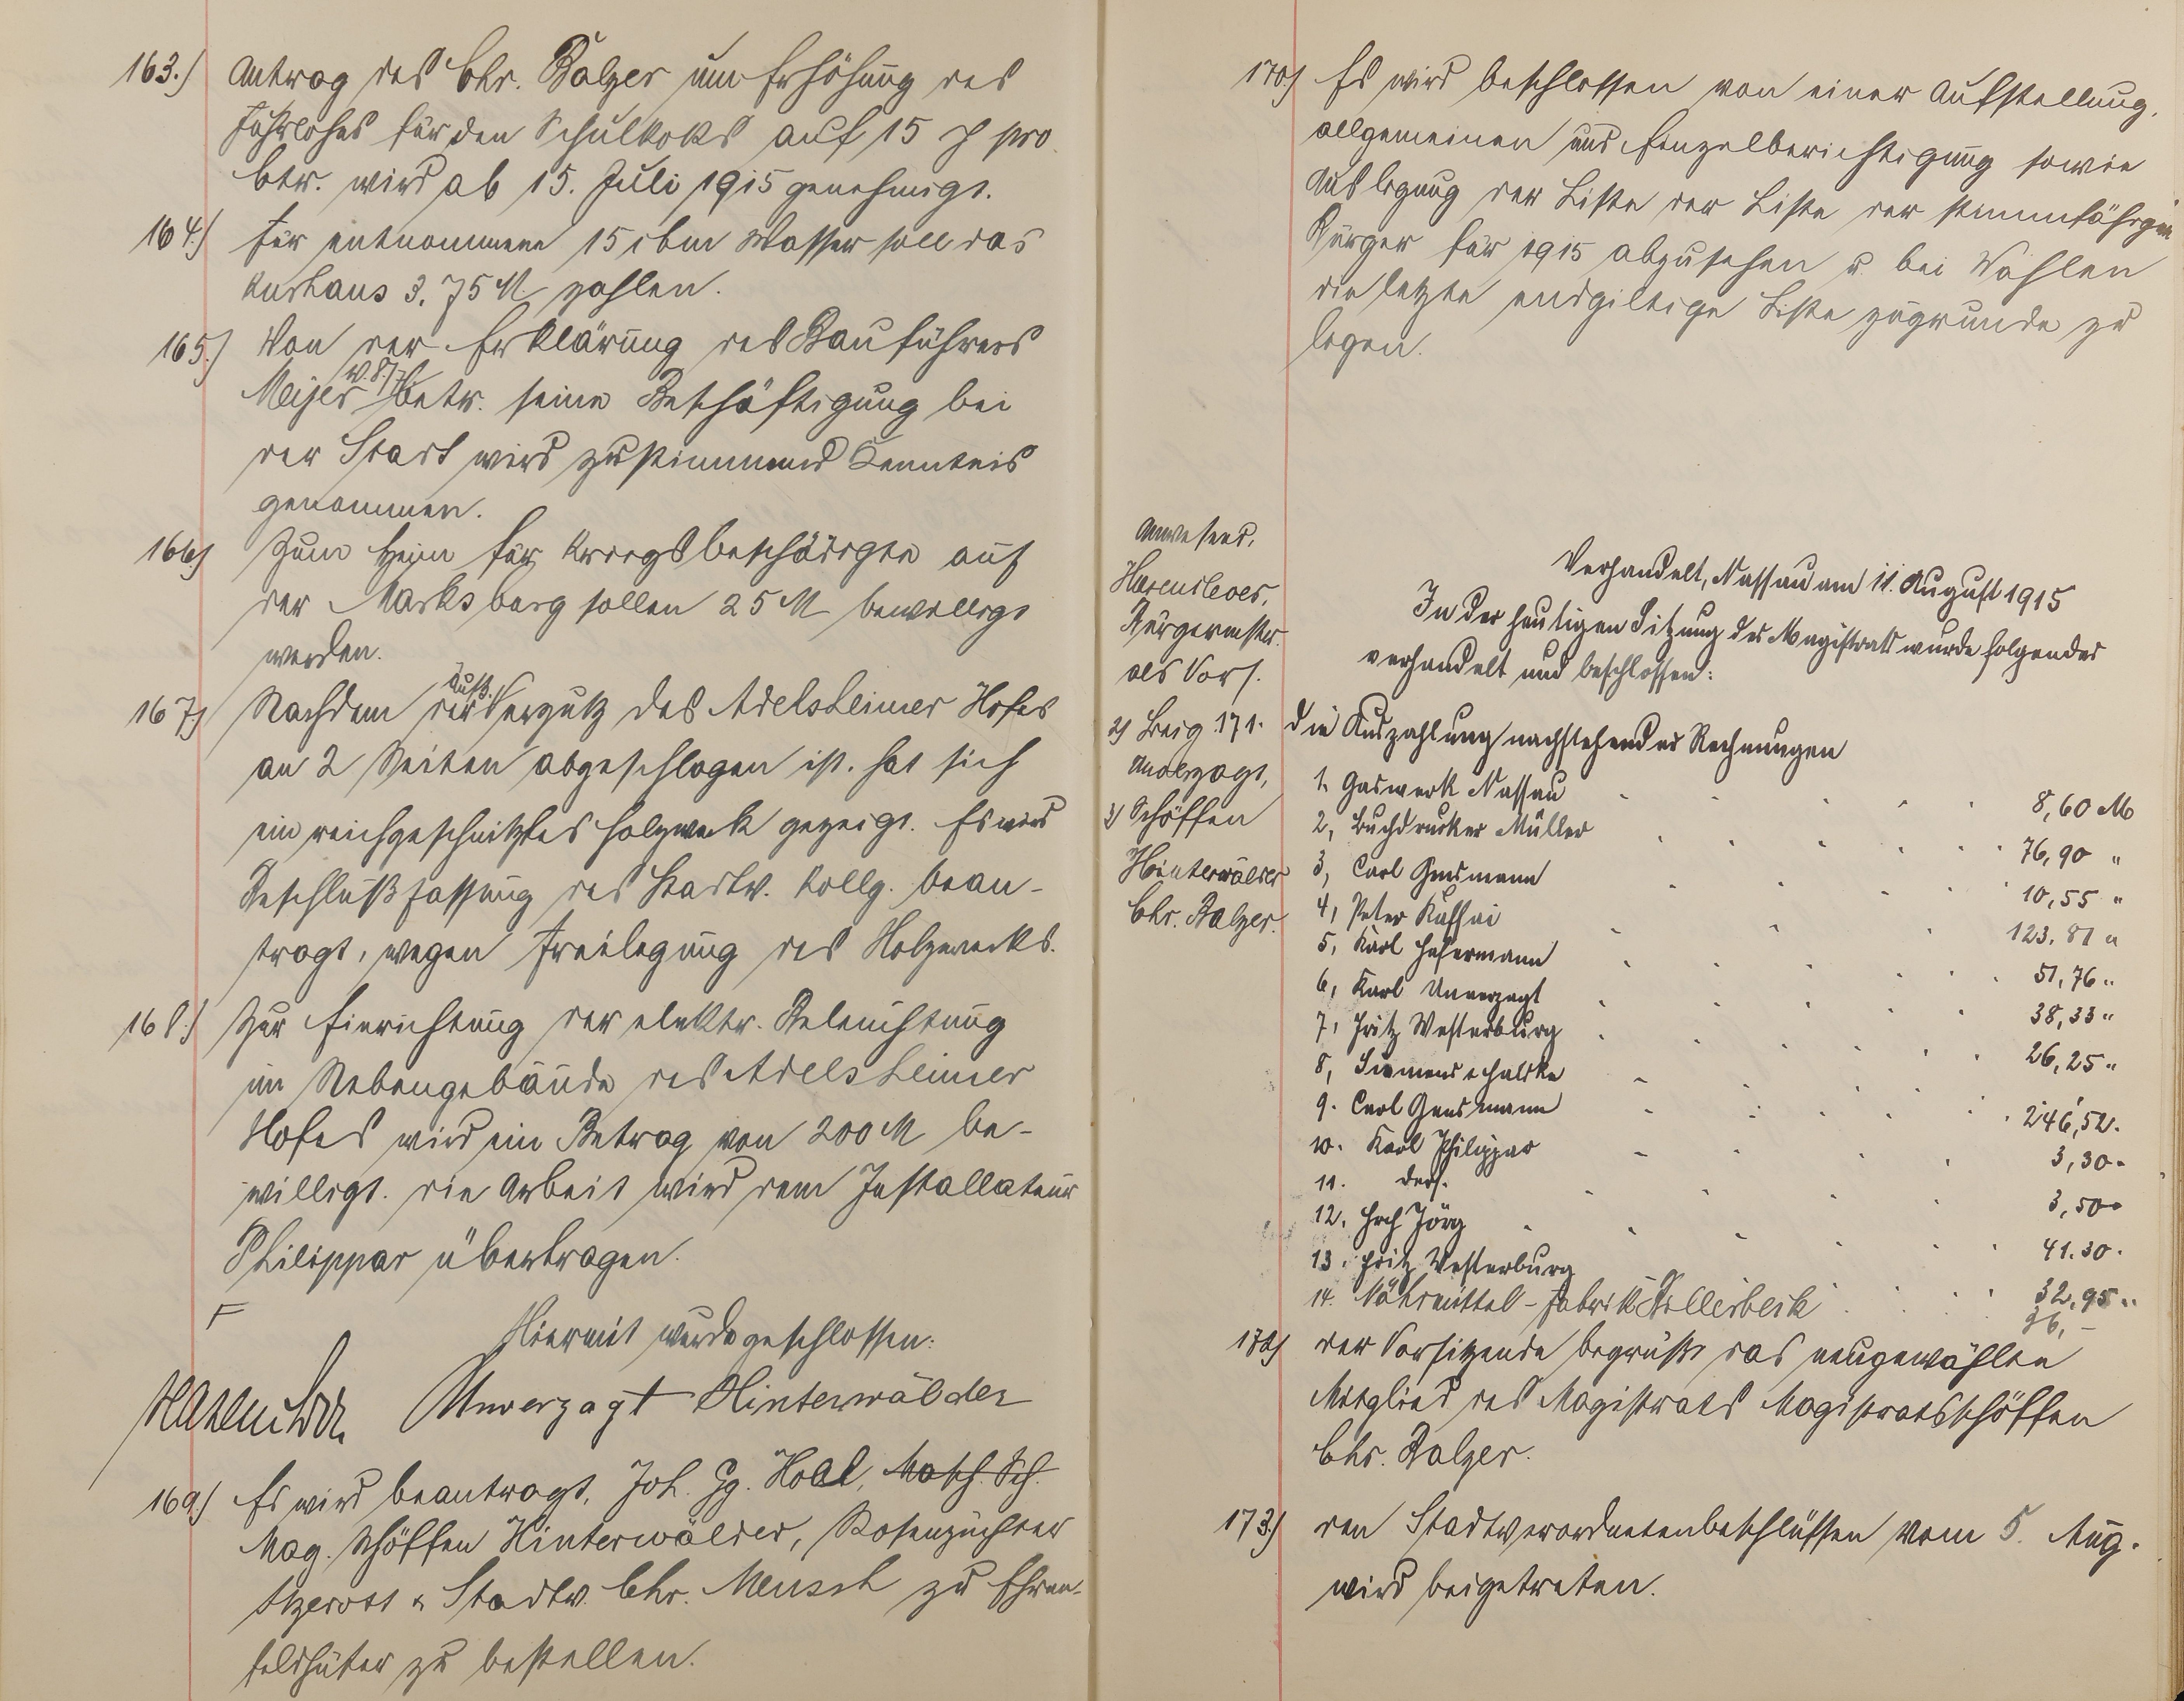 163.) Antrag des Chr. Balzer um Erhöhung des
Fuhrlohes für den Schulkoks auf 15 ₰ pro
Ctr. wird ab 15. Juli 1915 genehmigt.
164.) Für entnommene 15 cbm Wasser soll das
Kurhaus 3,75 M zahlen.
165.) Von der Erklärung des Bauführers
Meijer v. 8/7 betr. seine Beschäftigung bei
der Stadt wird zustimmend Kenntnis
genommen.
166) Zum Heim für Kriegsbeschädigte auf
der Marksburg sollen 25 M bewilligt
werden.
167) Nachdem der äuß. Verputz des Adelsheimer Hofes
an 2 Seiten abgeschlagen ist, hat sich
ein reichgeschnitztes Holzwerk gezeigt. Es wird
Beschlußfassung des Stadtv. Kollg. bean-
tragt, wegen Freilegung des Holzwerks.
168.) Zur Einrichtung der elektr. Beleuchtung
im Nebengebäude des Adelsheimer
Hofes wird ein Betrag von 200 M be-
willigt. die Arbeit wird dem Installateur
Philippar übertragen.
Hiermit wurde geschlossen:
Hasenclever Unverzagt Hinterwälder
169.) Es wird beantragt, Joh. Gg. Holl, Mosch. Sch.
Mag. Schöffen Hinterwälder, Rosenzüchter
Stadtv. Chr. Meusch zu Ehren-
feldhüter zu bestellen.
170.) Es wird beschlossen von einer Aufstellung,
allgemeinen und Einzelberichtigung sowie
Auslegung der Liste der Liste der stimmfähigen
Bürger für 1915 abzusehen u. bei Wahlen
die letzte endgiltige Liste zugrunde zu
legen.
Anwesend,
Hasenclever,
Bürgermstr.
als Vors.
2) Beig.
Unverzagt,
3) Schöffen
Hinterwälder
Chr. Balzer.
Verhandelt, Nassau am 11. August 1915
In der heutigen Sitzung des Magistrats wurde folgendes
verhandelt und beschlossen:
171. die Auszahlung nachstehender Rechnungen
1. Gaswerk Nassau 8,60 M
2, Buchdrucker Müller 76,90 "
3, Carl Gensmann 10,55 "
4, Peter Kaffai 123.81 "
5, Karl Hasermann 51,76 "
6, Karl Unverzagt 38,33 "
7, Fritz Westerburg 26,25 "
8, Siemens & Halske 246,52.
9. Carl Gensmann 3,30 "
10. Karl Philippar 3,50 "
11. ders. 41.30.
12. Hch Jörg 32,95 "
13. Fritz Westerburg
14. Nährmittel-Fabrik Hillerbeck 36,-
172) der Vorsitzende begrüßt das neugewählte
Mitglied des Magistrats Magistratsschöffen
Chr. Balzer.
173.) den Stadtverordnetenbeschlüssen vom 5. Aug.
wird beigetreten.